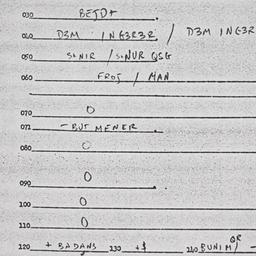 030 BETD+
040 D3M ING3R3R / D3M ING3R
050 SUNIR / SUNUR QSG
060 FROJ / MAN
070 0
072 - BUT MENER
080 0
090 0
100 0
110 0
OR
120 + BADANS 130 +$ 140 BUNIM/ -